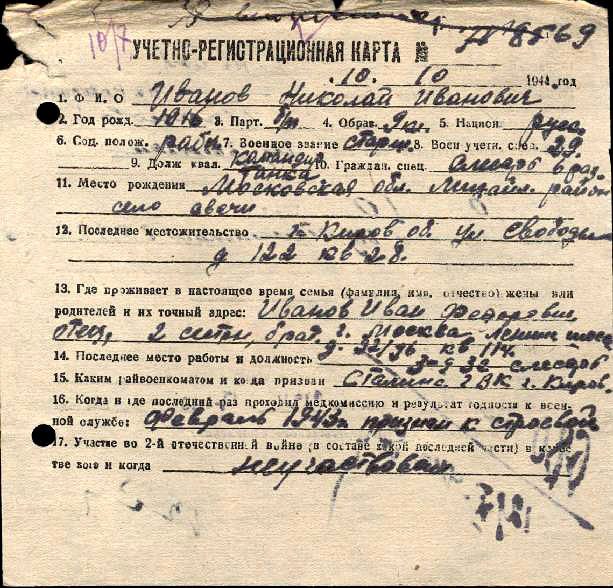 10/7
УЧЕТНО-РЕГИСТРАЦИОННАЯ КАРТА №
10. 10 1944 год
1. Ф И О Иванов Николай Иванович
2. Год рожд. 1916 3. Парт. б/п 4. Образ. 9 кл. 5. Национ русс.
6. Соц. полож. рабоч. 7. Военное звание старш. 8. Воен учетн. спец. 29
9. Долж квал. командир танка 10. Граждан. спец. слесарь 6 раз.
11. Место рождения Московская обл. Михайл. район
село
12. Последнее местожительство г. Киров об. ул Свободы
д 122 кв 28.
13. Где проживает в настоящее время семья (фамилия, имя, отчество) жены или
родителей и их точный адрес: Иванов Иван Федорович
отец, 2 сестры, брат г. Москва Ленин шоссе
д. 32/36 кв 114.
14. Последнее место работы и должность 3-д 32 слесарь
15. Каким райвоенкоматом и когда призван Сталинс ГВК г. Киров
16. Когда и где последний раз проходил медкомиссию и результат годности к воен-
ной службе: февраль 1943г. признан к строевой
17. Участие во 2-й отечественной войне (в составе какой последней части) в качес-
тве кого и когда не участвовал